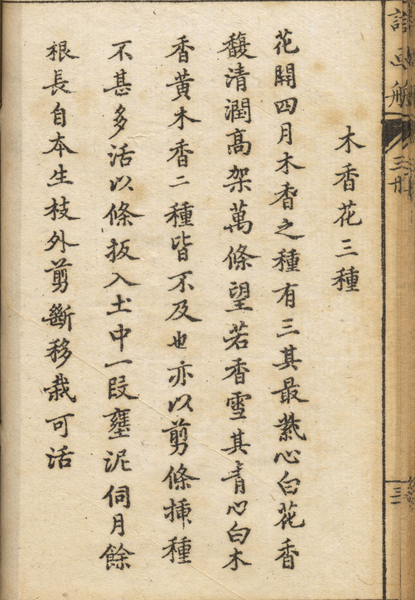 木香花三種
花開四月木香之種有三其最紫心白花香
馥清潤高架萬條望若香雪其青心白木
香黃木香二種皆不及也亦以剪條插種
不甚多活以條扳入土中一段壅泥伺月餘
根長自本生枝外剪斷移栽可活
三